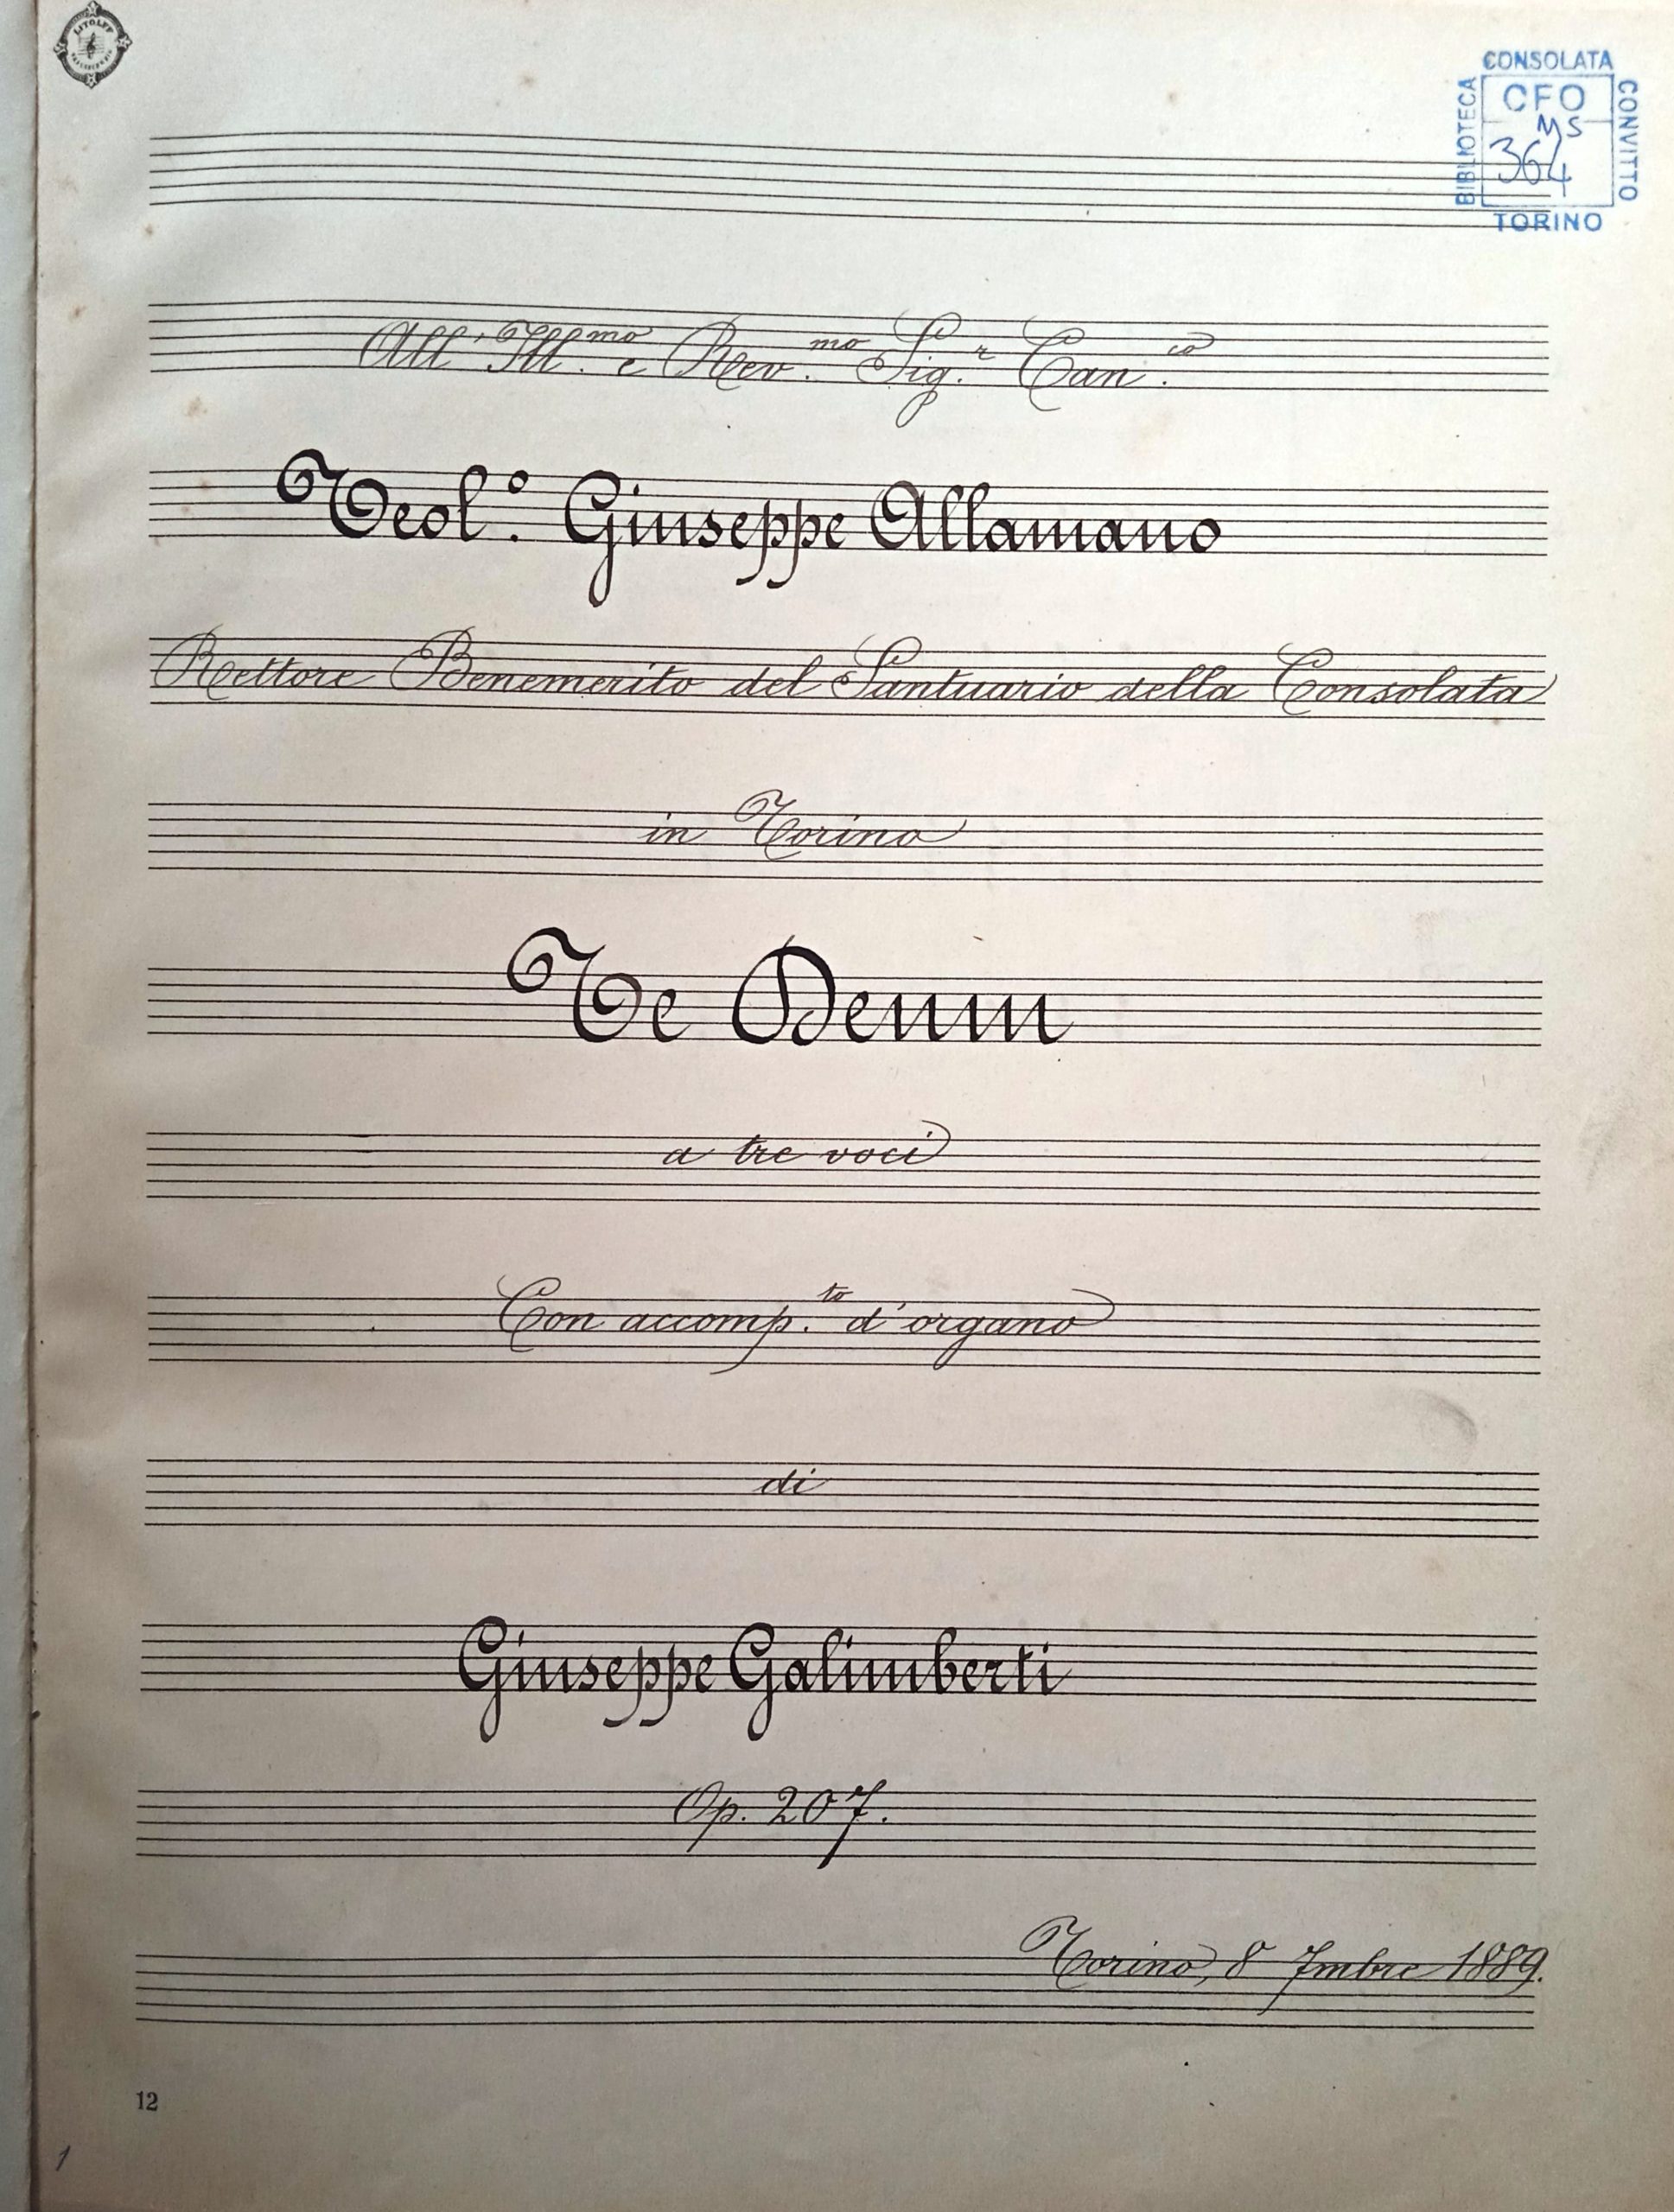 LITOLFF
CONSOLATA
BIBLIOTECA
CFO
MS
364
CONVITTO
TORINO
All' Ill.mo e Rev.mo Sig.r Can.co
Teol.o Giuseppe Allamano
Rettore Benemerito del Santuario della Consolata
in Torino
Te Deum
a tre voci
Con accomp.to d'organo
di
Giuseppe Galimberti
Op. 207.
Torino, 8 7mbre 1889.
12
1